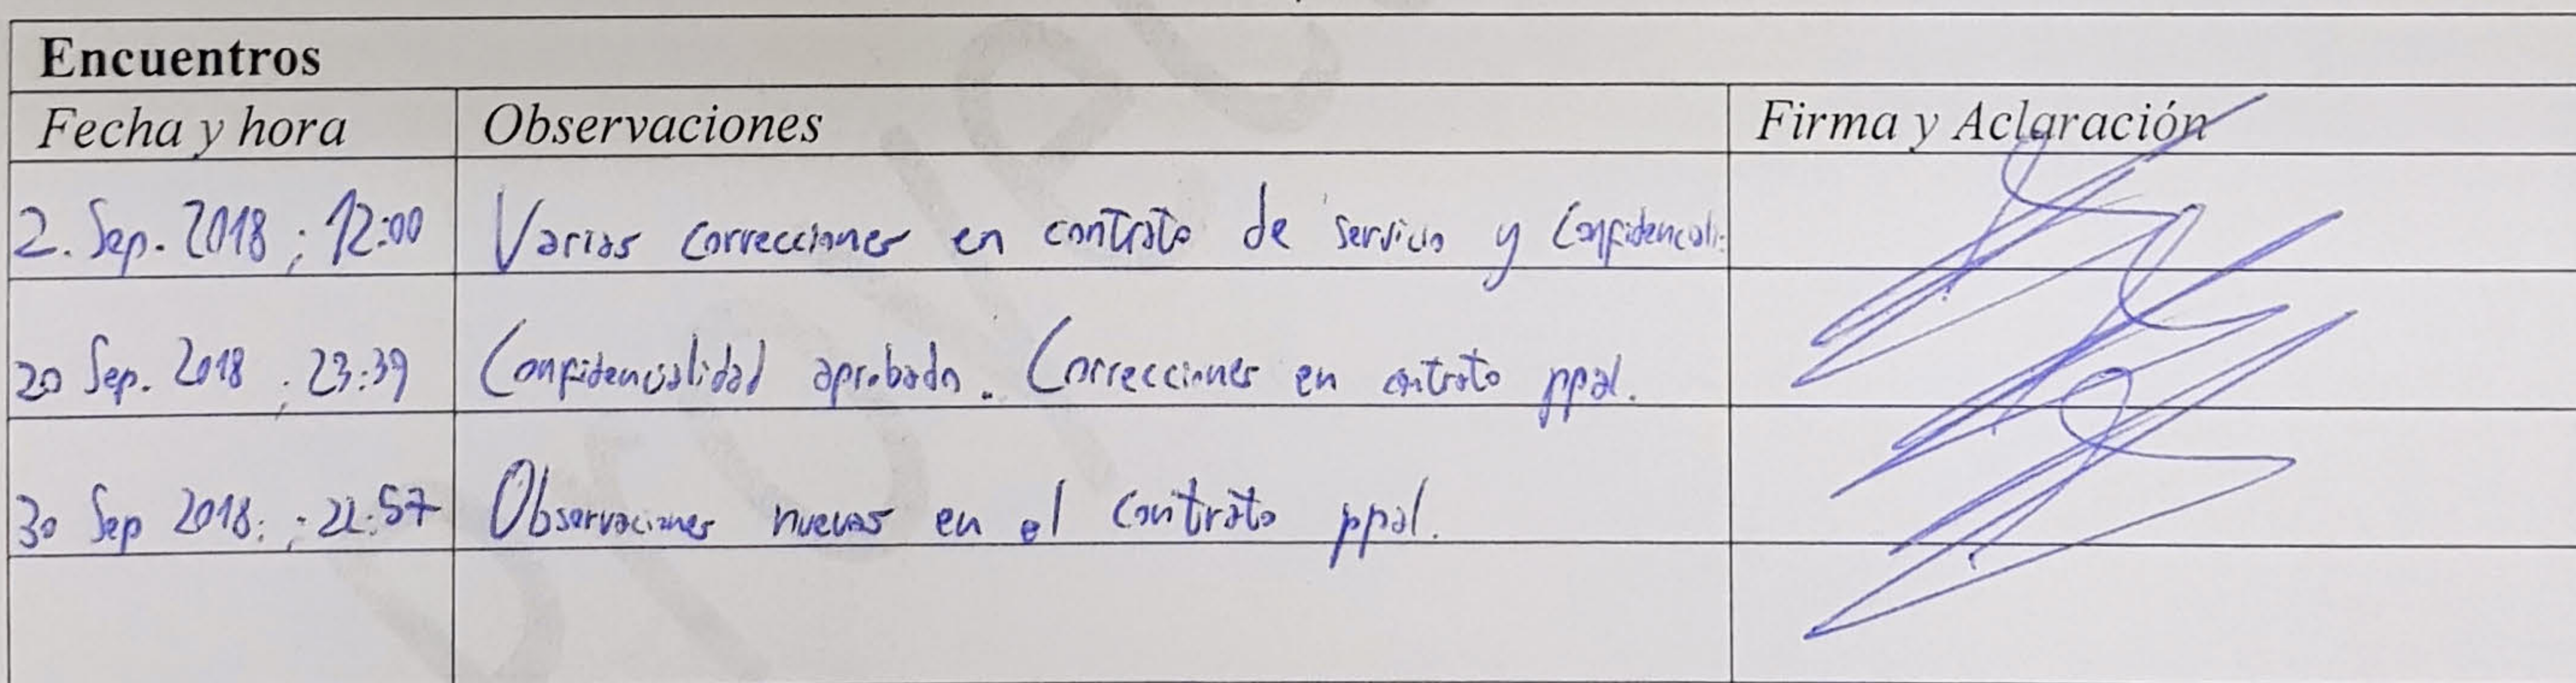 Encuentros
Fecha y hora Observaciones Firma y Aclaración
2. Sep. 2018 ; 12:00 Varias correcciones en contrato de servicio y Confidenciali-
20 Sep. 2018 ; 23:39 Confidencialidad aprobado. Correcciones en contrato ppal.
30 Sep 2018. ; 22:57 Observaciones nuevas en el contrato ppal.